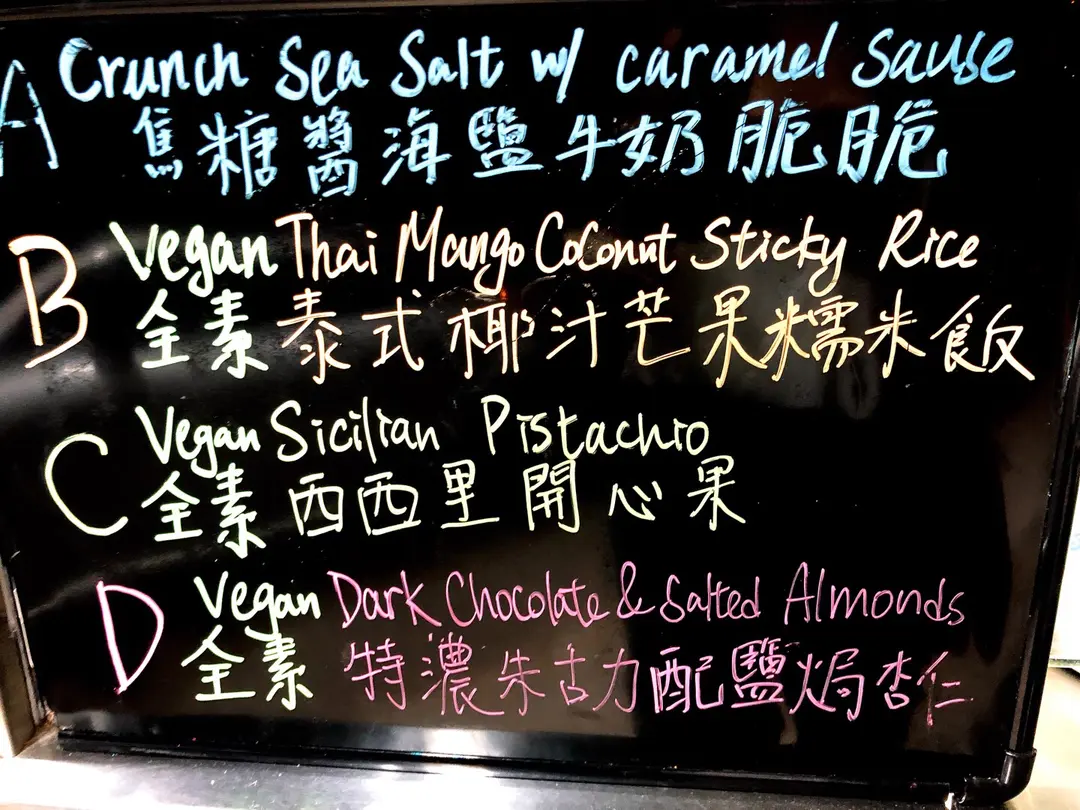 A Crunch Sea Salt w/ caramel Sause
焦糖醬海鹽牛奶脆脆
B Vegan Thai Mango Coconut Sticky Rice
全素泰式椰汁芒果糯米飯
C Vegan Sicilian Pistachio
全素西西里開心果
D Vegan Dark Chocolate & Salted Almonds
全素 特濃朱古力配鹽焗杏仁